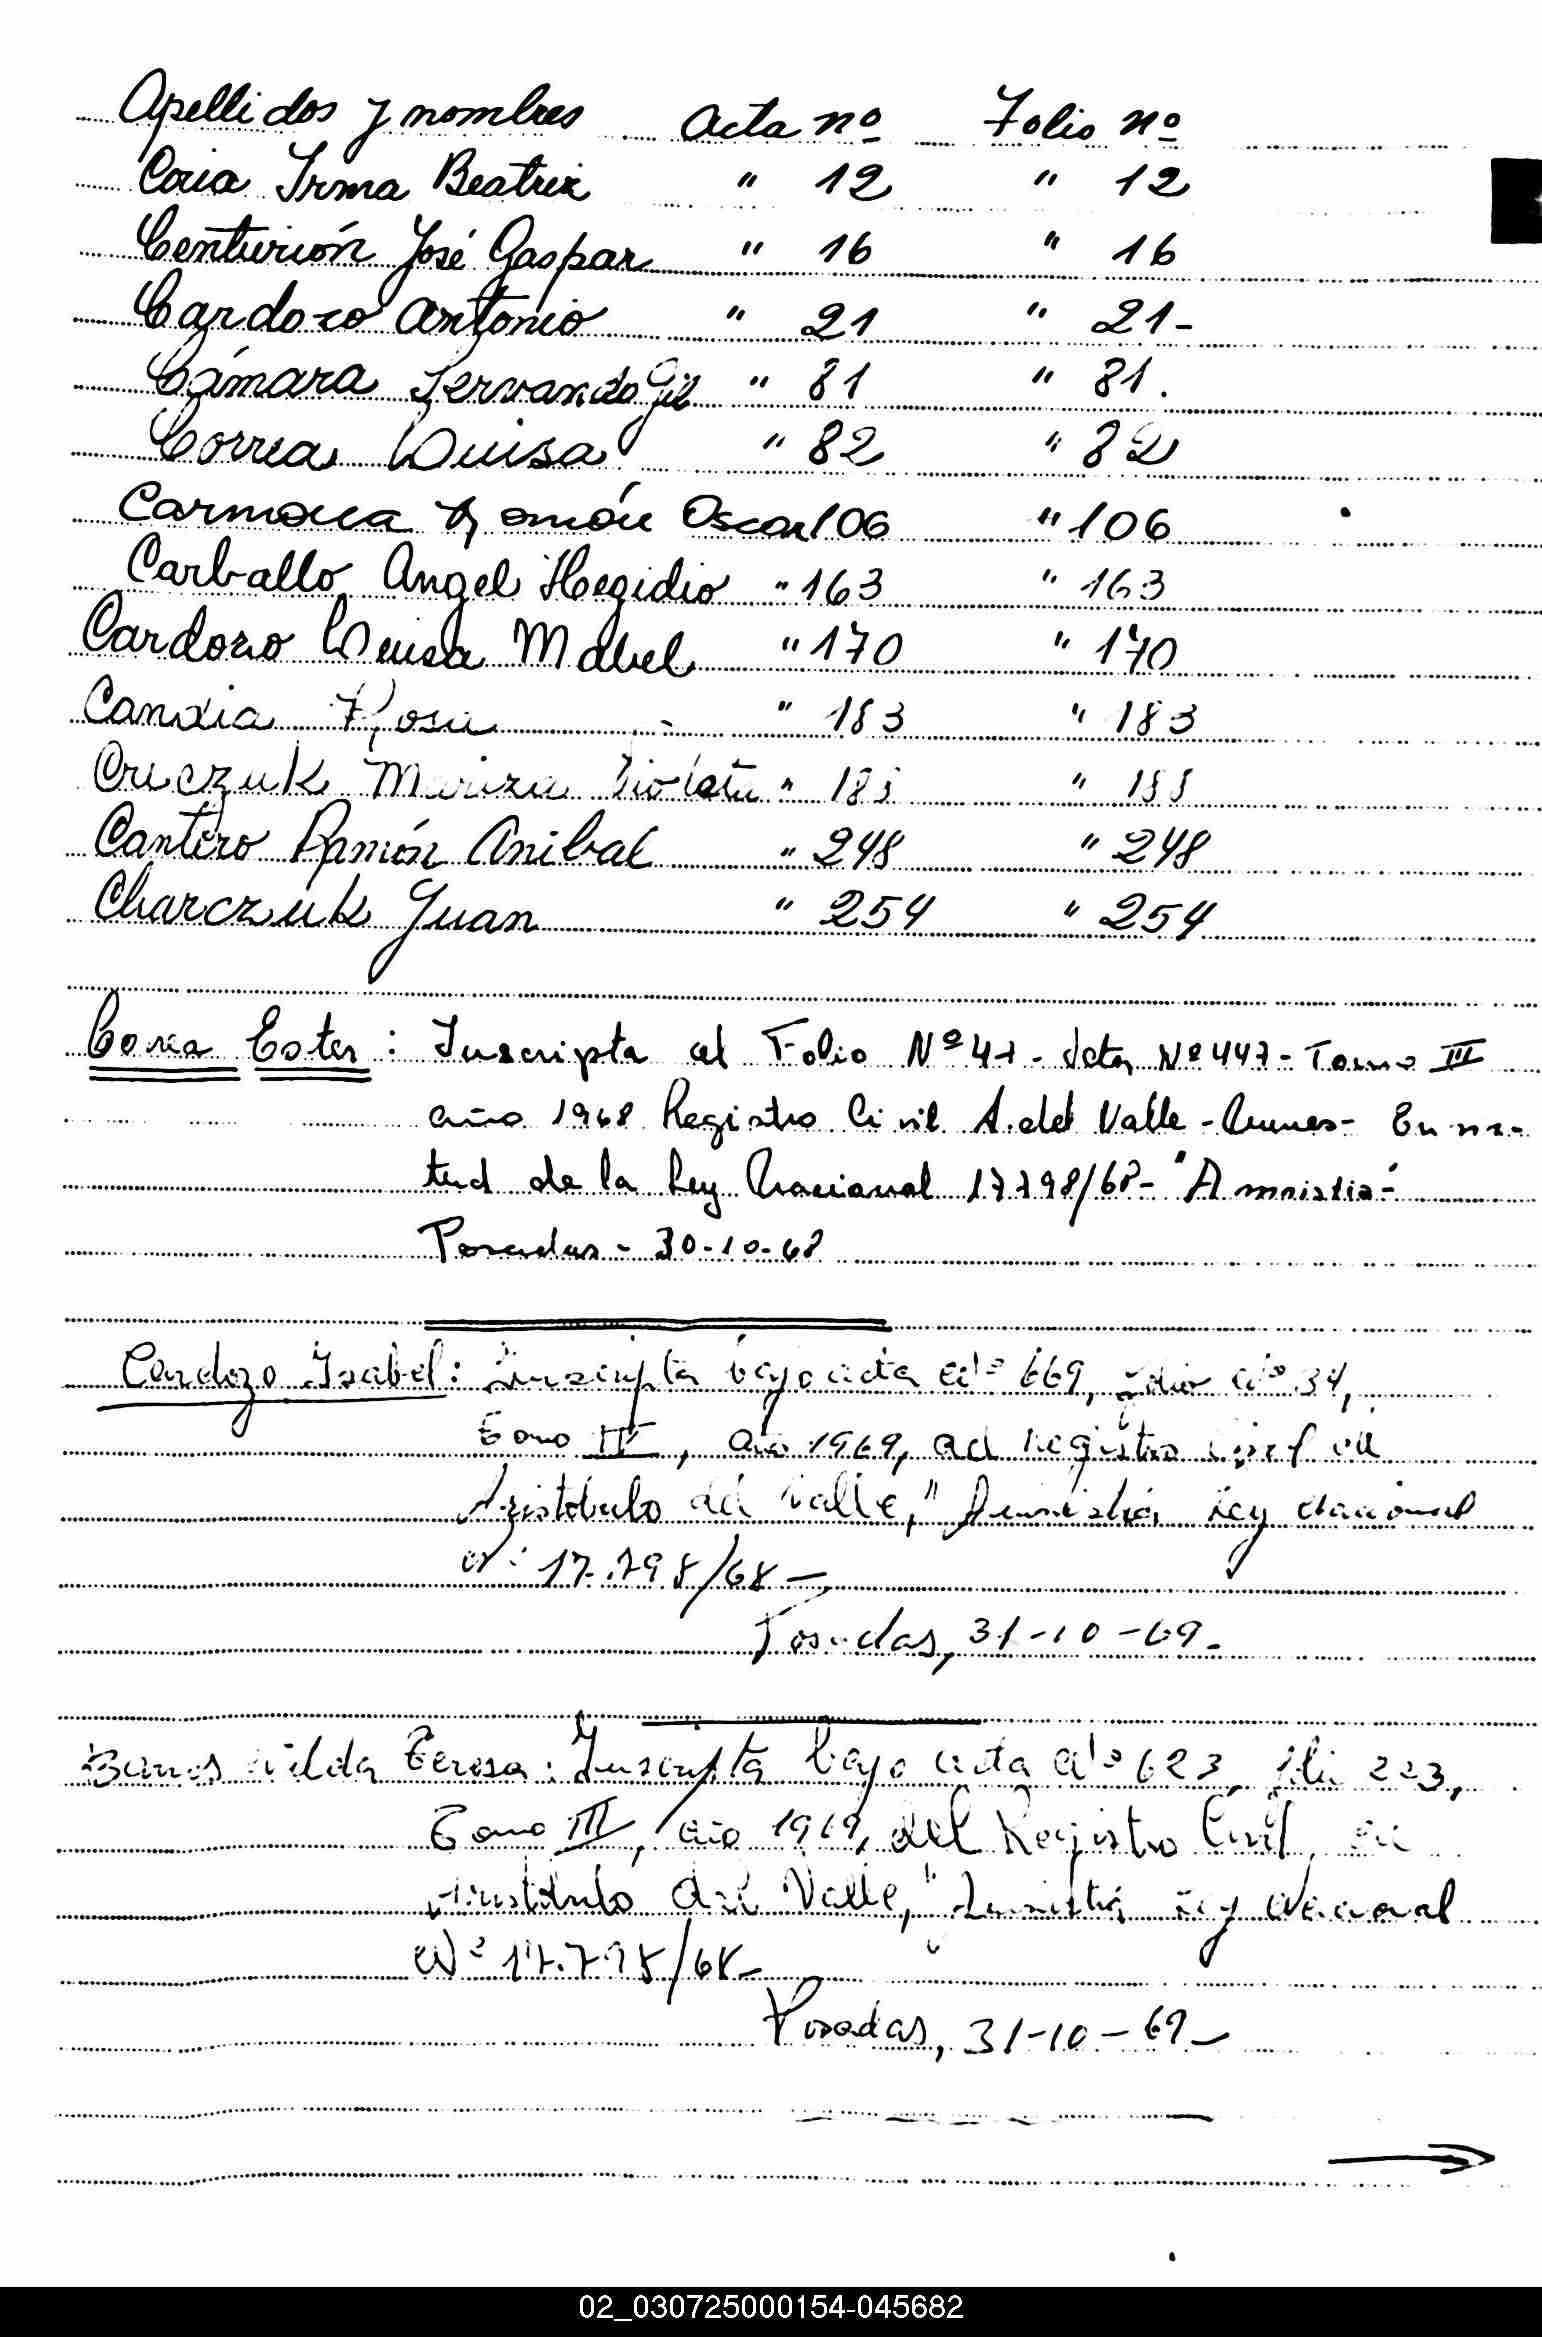 Apellidos y nombres Acta nº Folio nº
Coria Irma Beatriz " 12 " 12
Centurión José Gaspar " 16 " 16
Cardozo Antonio " 21 " 21-
Cámara Servando Gil " 81 " 81.
Correa Luisa " 82 " 82
Carmona Ramón Oscar 106 " 106
Carballo Angel Hegidio " 163 " 163
Cardozo Luisa Mabel " 170 " 170
Rosa " 183 " 183
Violeta " "
Cantero Ramón Anibal " 248 " 248
Charczuk Juan " 254 " 254
Ester: Inscripta al Folio Nº 47- Acta Nº 447- Tomo III
año 1968 Registro Civil A. del Valle -
tud de la Ley Nacional 17798/68- "Amnistia-
Posadas- 30-10-68
Cardozo Isabel: Inscripta bajo acta Nº 669, folio Nº 34,
Tomo IV, año 1969, del Registro Civil en
Aristóbulo del Valle, "Amnistia, Ley Nacional
Nº 17.798/68-
Posadas, 31-10-69.
Teresa: Inscripta bajo acta Nº 623, folio 223,
Tomo III, año 1969, del Registro Civil, en
Aristóbulo del Valle, "Amnistia, Ley Nacional
Nº 17.798/68-
Posadas, 31-10-69-
02_030725000154-045682